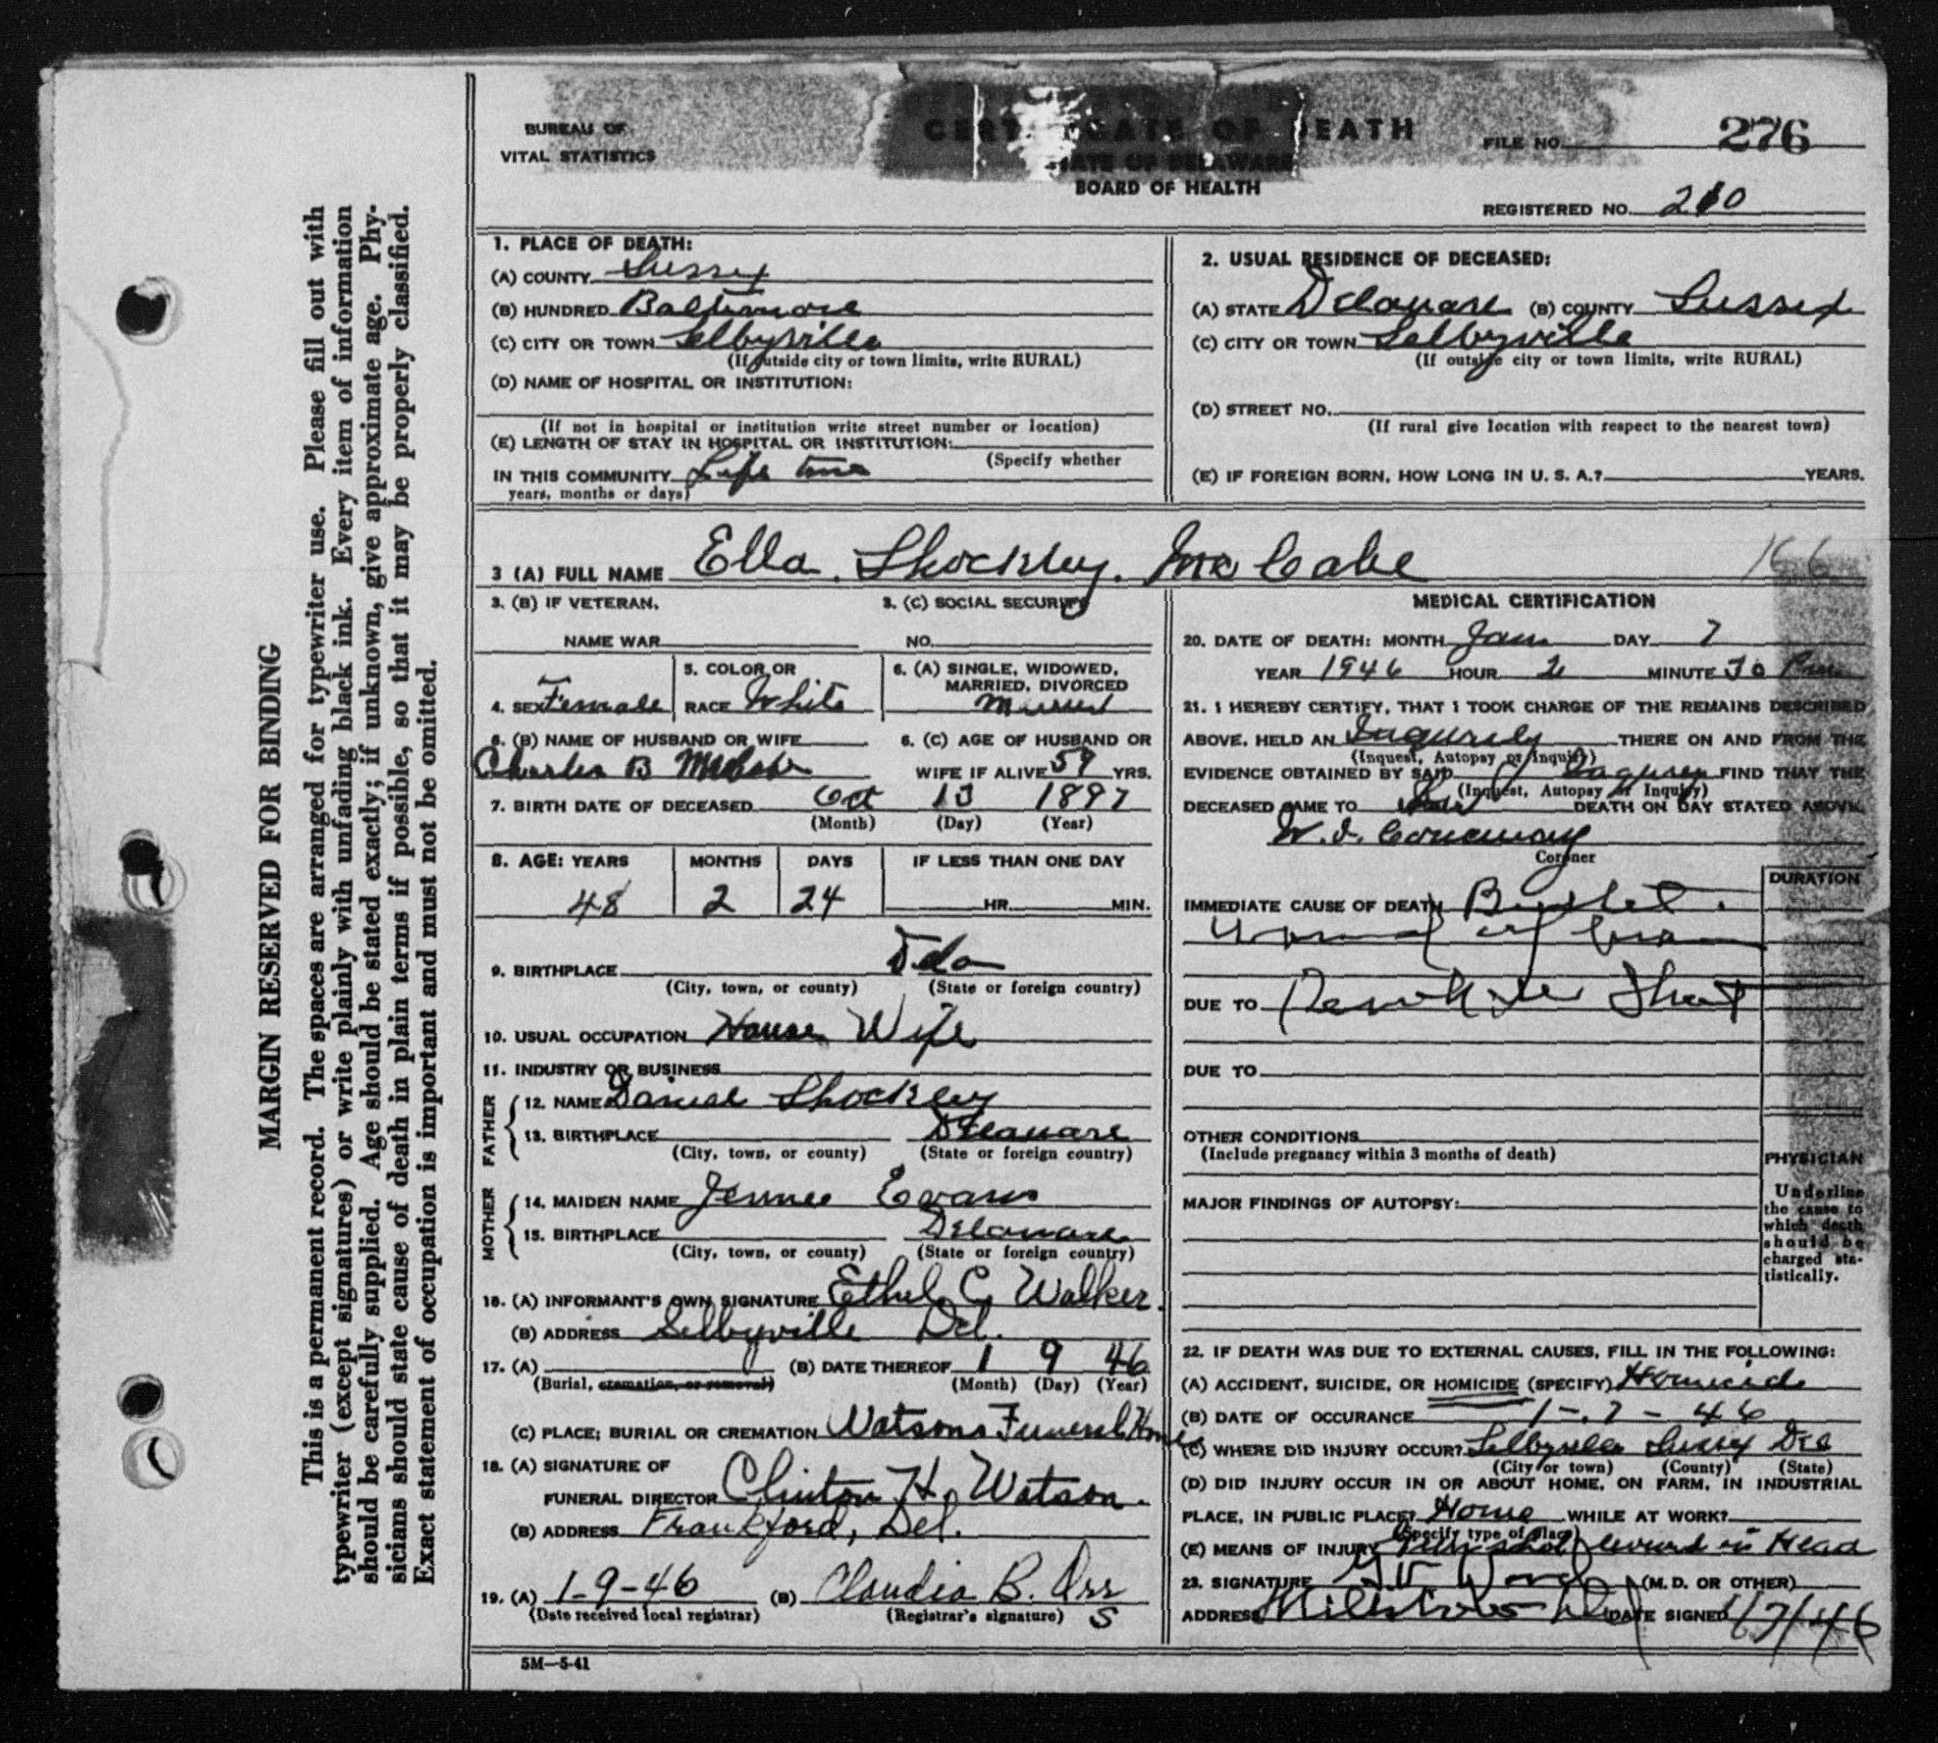 BUREAU OF
VITAL STATISTICS
CERTIFICATE OF DEATH
STATE OF DELAWARE
BOARD OF HEALTH
FILE NO. 276
REGISTERED NO. 210
MARGIN RESERVED FOR BINDING
This is a permanent record. The spaces are arranged for typewriter use. Please fill out with
typewriter (except signatures) or write plainly with unfading black ink. Every item of information
should be carefully supplied. Age should be stated exactly; if unknown, give approximate age. Phy-
sicians should state cause of death in plain terms if possible, so that it may be properly classified.
Exact statement of occupation is important and must not be omitted.
1. PLACE OF DEATH:
(A) COUNTY Sussex
(B) HUNDRED Baltimore
(C) CITY OR TOWN Selbyville
(If outside city or town limits, write RURAL)
(D) NAME OF HOSPITAL OR INSTITUTION:
(If not in hospital or institution write street number or location)
(E) LENGTH OF STAY IN HOSPITAL OR INSTITUTION:
(Specify whether
IN THIS COMMUNITY Life time
years, months or days)
2. USUAL RESIDENCE OF DECEASED:
(A) STATE Delaware (B) COUNTY Sussex
(C) CITY OR TOWN Selbyville
(If outside city or town limits, write RURAL)
(D) STREET NO.
(If rural give location with respect to the nearest town)
(E) IF FOREIGN BORN, HOW LONG IN U. S. A.? YEARS.
3 (A) FULL NAME Ella Shockley McCabe
166
3. (B) IF VETERAN, 3. (C) SOCIAL SECURITY
NAME WAR NO.
4. SEX Female
5. COLOR OR
RACE White
6. (A) SINGLE, WIDOWED,
MARRIED, DIVORCED
Married
6. (B) NAME OF HUSBAND OR WIFE
Charles B McCabe
6. (C) AGE OF HUSBAND OR
WIFE IF ALIVE 59 YRS.
7. BIRTH DATE OF DECEASED Oct 13 1897
(Month) (Day) (Year)
8. AGE: YEARS MONTHS DAYS IF LESS THAN ONE DAY
48 2 24 HR. MIN.
9. BIRTHPLACE Del
(City, town, or county) (State or foreign country)
10. USUAL OCCUPATION House Wife
11. INDUSTRY OR BUSINESS
FATHER
12. NAME Daniel Shockley
13. BIRTHPLACE Delaware
(City, town, or county) (State or foreign country)
MOTHER
14. MAIDEN NAME Jennie Evans
15. BIRTHPLACE Delaware
(City, town, or county) (State or foreign country)
16. (A) INFORMANT'S OWN SIGNATURE Ethel C. Walker.
(B) ADDRESS Selbyville Del.
17. (A) (B) DATE THEREOF 1 9 46
(Burial, cremation, or removal) (Month) (Day) (Year)
(C) PLACE; BURIAL OR CREMATION Watsons Funeral Home
18. (A) SIGNATURE OF
FUNERAL DIRECTOR Clinton H. Watson.
(B) ADDRESS Frankford, Del.
19. (A) 1-9-46 (B) Claudia B. Orr
(Date received local registrar) (Registrar's signature) S
5M—5-41
MEDICAL CERTIFICATION
20. DATE OF DEATH: MONTH Jan DAY 7
YEAR 1946 HOUR 2 MINUTE 30 Pm
21. I HEREBY CERTIFY, THAT I TOOK CHARGE OF THE REMAINS DESCRIBED
ABOVE, HELD AN THERE ON AND FROM THE
(Inquest, Autopsy or Inquiry)
EVIDENCE OBTAINED BY SAID FIND THAT THE
(Inquest, Autopsy or Inquiry)
DECEASED CAME TO DEATH ON DAY STATED ABOVE.
Coroner
DURATION
IMMEDIATE CAUSE OF DEATH Bullet
wound of
DUE TO
DUE TO
OTHER CONDITIONS
(Include pregnancy within 3 months of death)
MAJOR FINDINGS OF AUTOPSY:
PHYSICIAN
Underline
the cause to
which death
should be
charged sta-
tistically.
22. IF DEATH WAS DUE TO EXTERNAL CAUSES, FILL IN THE FOLLOWING:
(A) ACCIDENT, SUICIDE, OR HOMICIDE (SPECIFY) Homicide
(B) DATE OF OCCURANCE 1-7-46
(C) WHERE DID INJURY OCCUR? Selbyville Sussex Del
(City or town) (County) (State)
(D) DID INJURY OCCUR IN OR ABOUT HOME, ON FARM, IN INDUSTRIAL
PLACE, IN PUBLIC PLACE? Home WHILE AT WORK?
(Specify type of place)
(E) MEANS OF INJURY Gunshot wound in Head
23. SIGNATURE (M. D. OR OTHER)
ADDRESS Millsboro Del DATE SIGNED 1/7/46